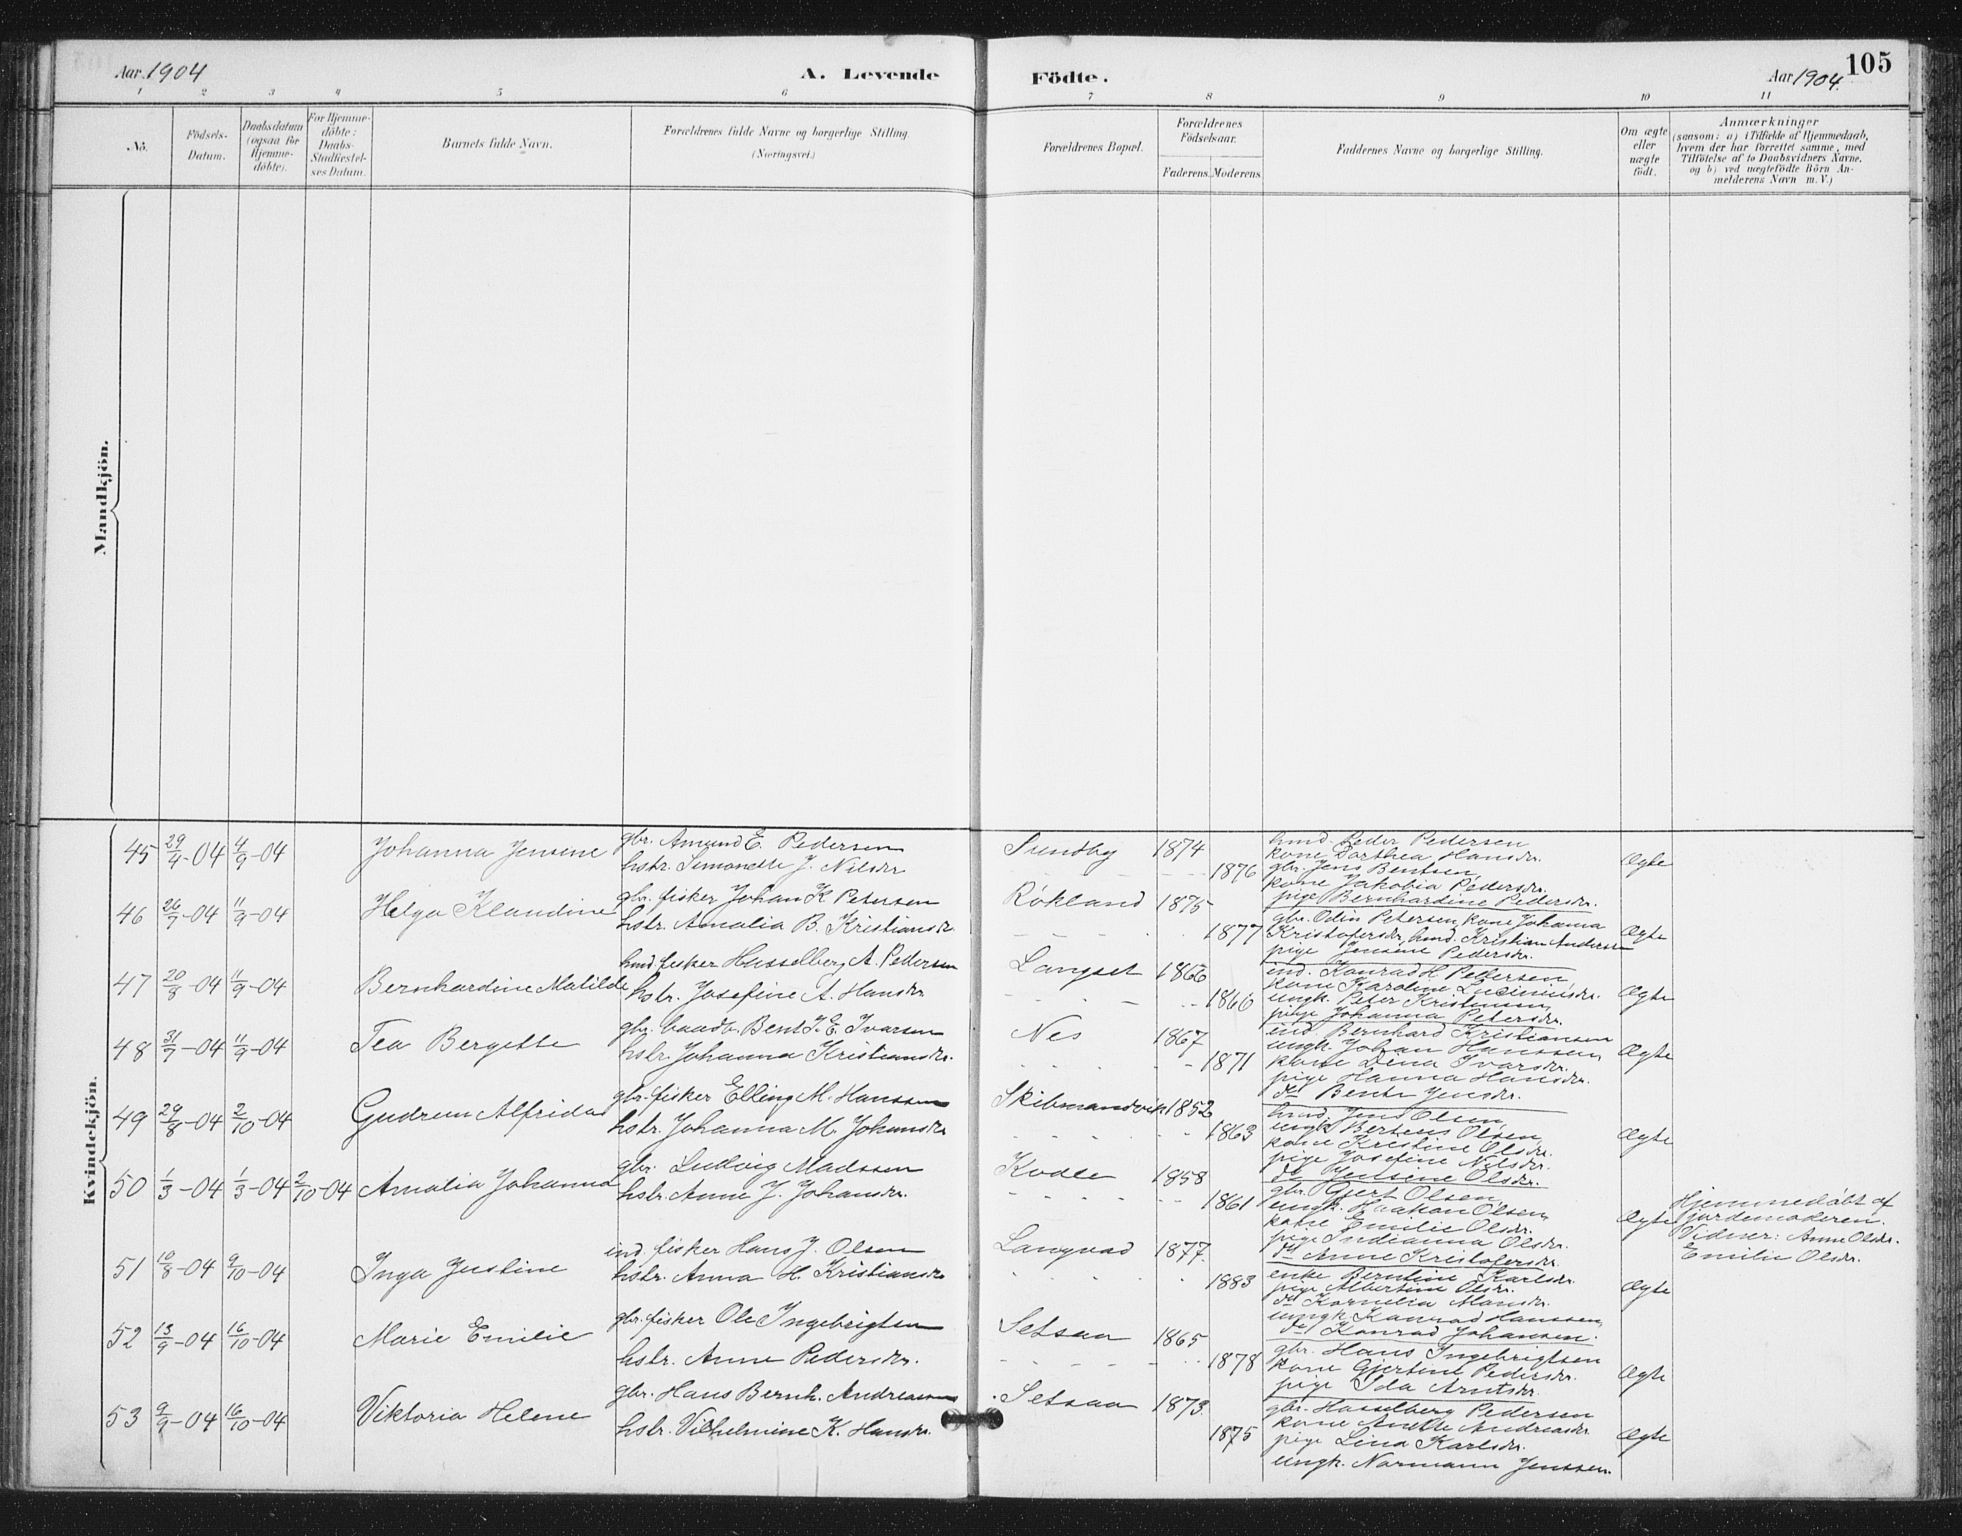 Aar 1904
A. Levende
Födte.
Aar 1904.
105
1 2 3 4 5 6 7 8 9 10 11
No.
Födsels-
Datum.
Daabsdatum
(ogsaa for
Hjemme-
döbte).
For Hjemme-
döbte:
Daabs-
Stadfæstel-
ses Datum.
Barnets fulde Navn.
Forældrenes fulde Navne og borgerlige Stilling
(Næringsvei.)
Forældrenes Bopæl.
Forældrenes
Födselsaar.
Faderens. Moderens
Faddernes Navne og borgerlige Stilling.
Om ægte
eller
uægte
födt.
Anmærkninger
(saasom: a) i Tilfælde af Hjemmedaab,
hvem der har forrettet samme, med
Tilföielse af to Daabsvidners Navne,
og b) ved uægtefödte Börn An-
melderens Navn m.V.)
Mandkjön.
Kvindekjön.
45 29/4-04 4/9-04 Johanna Jensine
gbr. Amund E. Pedersen
hstr. Simonette J. Nilsdr
Sundby 1874
1876
hmd. Peder Pedersen
kone Dorthea Hansdr.
gbr. Jens Bentsen,
kone Jakobia Pedersdr.
pige Bernhardine Pedersdr.
Ægte
46 26/7-04 11/9-04 Helga Klaudine
gbr. fisker Johan K Petersen
hstr. Amalia B. Kristiansdr.
Rökland 1875
1877
gbr. Odin Petersen, kone Johanna
Kristofersdr, hmd. Kristian Andersen
pige Jensine Pedersdr.
Ægte
47 20/8-04 11/9-04 Bernhardine Matilde
hmd fisker Hasselberg A. Pedersen
hstr. Josefine A. Hansdr
Langset 1866
1860
ind. Konrad H Pettersen,
kone Karoline
ungk. Peter Kristensen,
pige Johanna Petersdr.
Ægte
48 31/7-04 11/9-04 Tea Bergette
gbr. baadb. Bent J. E. Ivarsen
hstr. Johanna Kristiansdr.
Nes 1867
1871
ind. Bernhard Kristiansen
ungk. Johan Hanssen,
kone Lena Ivarsdr.
pige Hanna Hansdr.
do Bente Jensdr.
Ægte
49 29/8-04 2/10-04 Gudrun Alfrida
gbr. fisker Elling M. Hanssen
hstr. Johanna M. Johansdr
Skibmandvik 1852
1863
hmd. Jens Olsen,
ungk Berteus Olsen,
kone Kristine Olsdr.
pige Josefine Nilsdr.
do Jensine Olsdr.
Ægte
50 1/3-04 1/3-04 2/10-04 Amalia Johanna
gbr. Ludvig Madssen
hstr. Anne J. Johansdr.
Kodle 1858
1861
gbr. Gjert Olsen,
ungk. Haakon Olsen,
kone Emilie Olsdr.
pige Indianna Olsdr.
do Anne Kristofersdr.
Ægte
Hjemmedöbt af
jordemoderen.
Vidner: Anne Olsdr.
Emilie Olsdr.
51 10/8-04 9/10-04 Inga Justine
ind. fisker Hans J. Olsen
hstr. Anna H. Kristiansdr
Langvad 1877
1883
enke Berntine Karlsdr
pige Albertine Olsdr.
do Kornelia Monsdr.
ungk Konrad Hanssen,
do Konrad Johansen.
Ægte
52 13/9-04 16/10-04 Marie Emilie
gbr. fisker Ole Ingebrigtsen
hstr. Anne Pedersdr.
Setsaa 1865
1878
gbr. Hans Ingebrigtsen
kone Gjertine Pedersdr.
pige Ida Arntsdr.
Ægte
53 9/9-04 16/10-04 Viktoria Helene
gbr. Hans Bernh. Andreassen
hstr. Vilhelmine K. Hansdr.
Setsaa 1873
1875
gbr. Hasselberg Pedersen
kone Anette Andreasdr
pige Lina Karlsdr.
ungk. Normann Jenssen.
Ægte